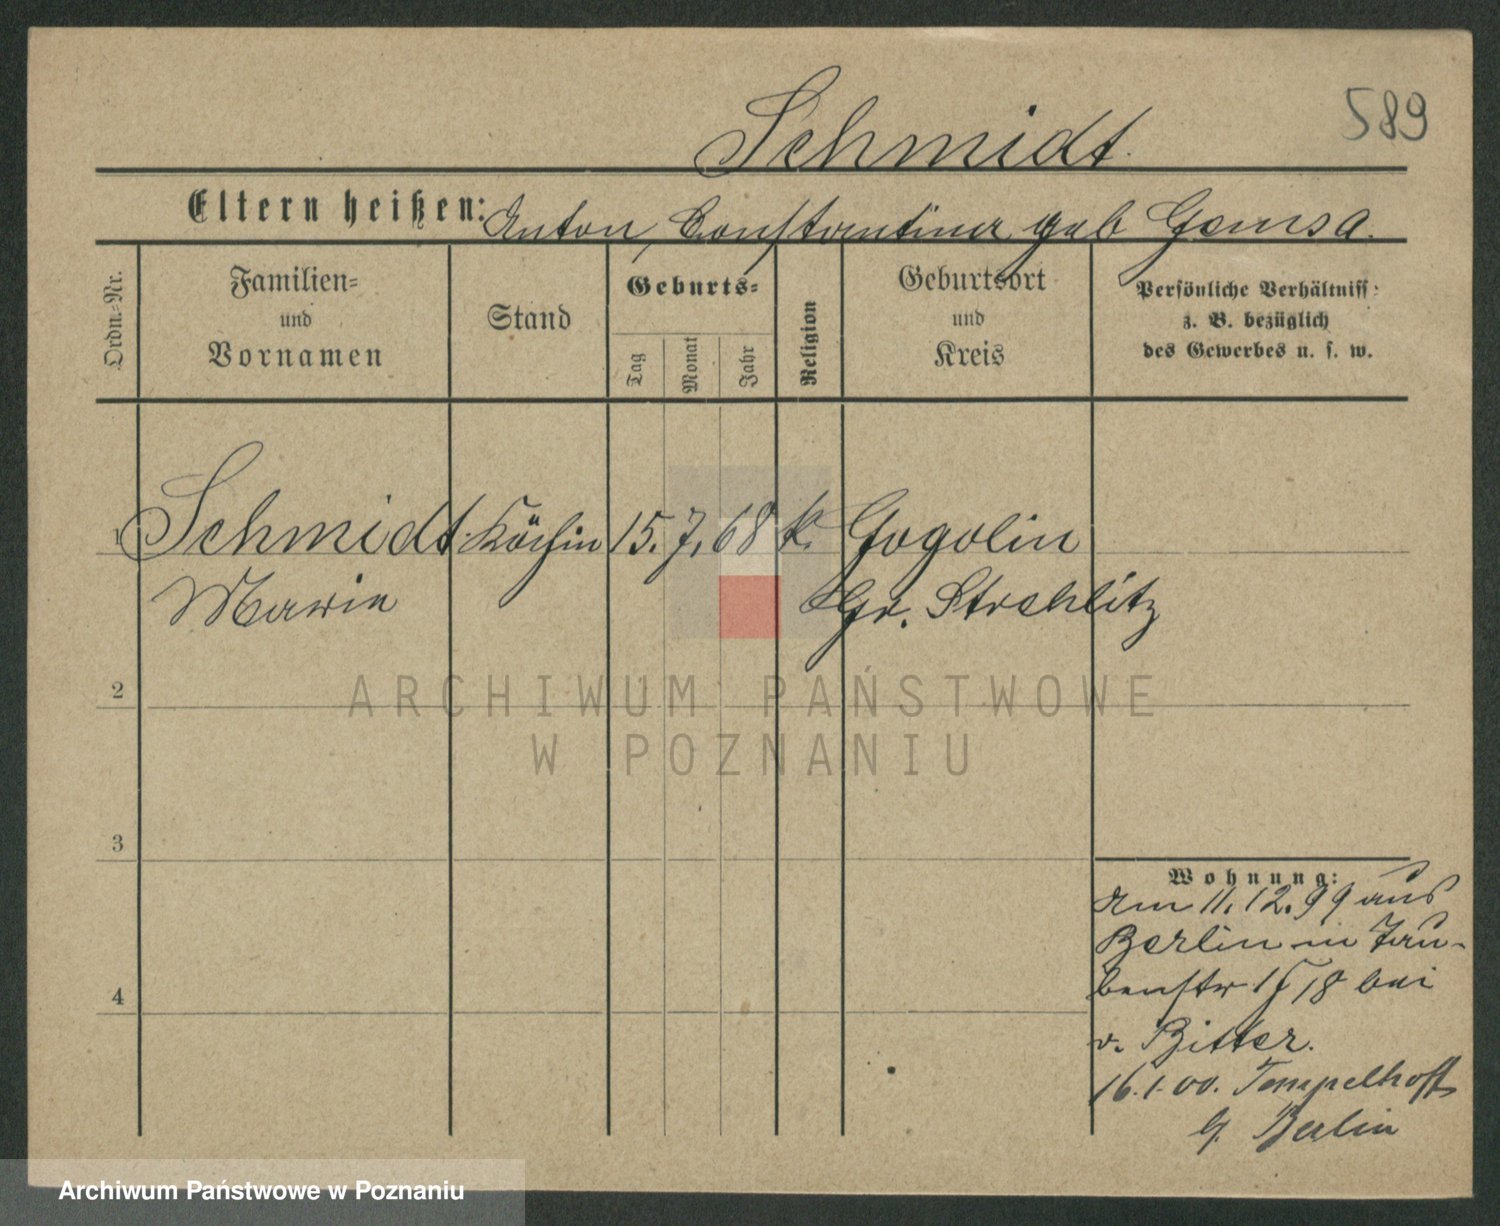 589
Schmidt.
Eltern heißen: Anton, Constantina geb Gemsa.
Ordn.-Nr.
Familien-
und
Vornamen
Stand
Geburts-
Tag
Monat
Jahr
Religion
Geburtsort
und
Kreis
Persönliche Verhältniss:
z. B. bezüglich
des Gewerbes u. s. w.
1 Schmidt Köchin 15. 7. 68 k. Gogolin
Marie Gr. Strehlitz
2
ARCHIWUM PAŃSTWOWE
W POZNANIU
3
Wohnung:
Am 11. 12. 99 aus
Berlin in Tau-
benstr 18 bei
v. Bitter.
16. 1. 00. Tempelhoff
b. Berlin
4
Archiwum Państwowe w Poznaniu